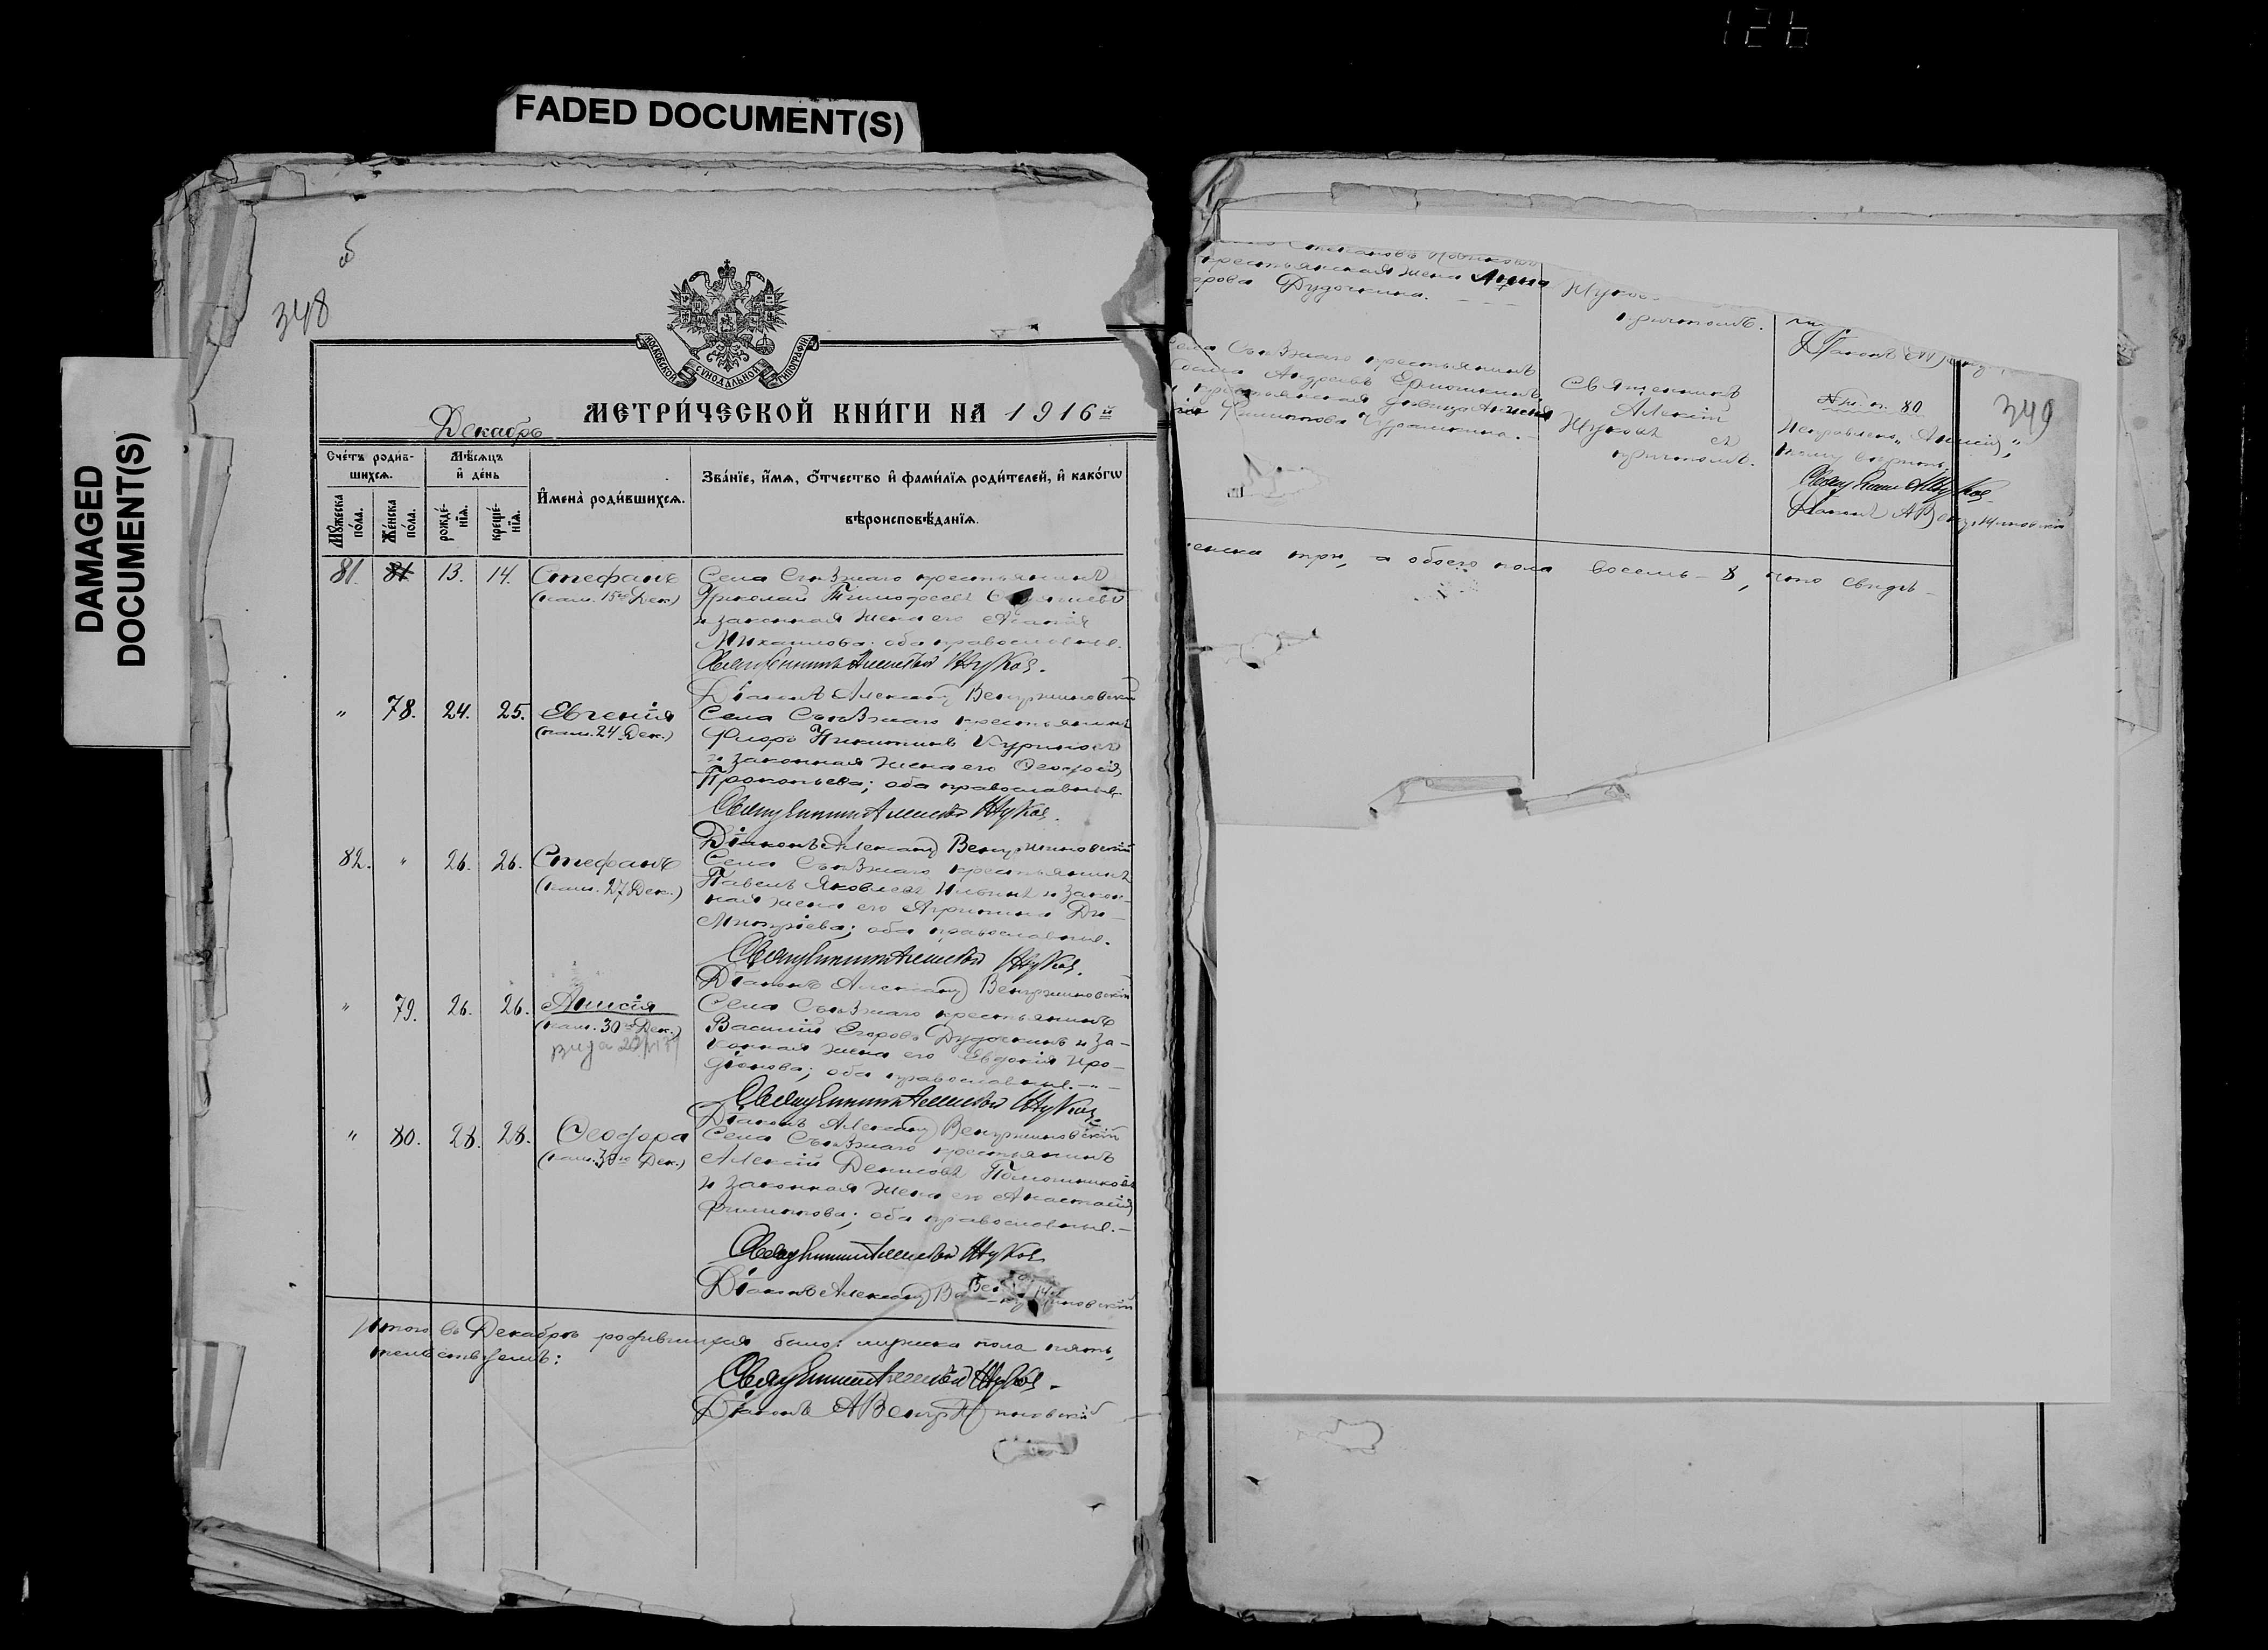 126
FADED DOCUMENT(S)
DAMAGED
DOCUMENT(S)
348
МОСКОВСКОЙ СѴНОДАЛЬНОЙ ТИПОГРАФІИ
Декабрь
МЕТРИ́ЧЕСКОЙ КНИ́ГИ НА 1916й
Сче́тъ роди́в-
шихсѧ.
Мꙋ́жеска по́ла.
Же́нска по́ла.
Мѣ́сѧцъ
и҆ де́нь
рожде́-
нїѧ.
креще́-
нїѧ.
И҆мена̀ роди́вшихсѧ.
Зва́нїе, и҆́мѧ, ѻ҆́тчество и҆ фами́лїѧ роди́телей, и҆ како́гѡ
вѣроисповѣ́данїѧ.
81. 81 13. 14. Стефанъ
(пам. 15го Дек.)
Села Съѣзжаго крестьянинъ
Николай Тимофеевъ
и законная жена его Агафія
Михаилова; оба православные.
Священникъ Алексѣй Жуковъ.
Діаконъ Александр Венгржиновскій
" 78. 24. 25. Евгенія
(пам. 24 Дек.)
Села Съѣзжаго крестьянинъ
Флоръ Никитинъ Куриновъ
и законная жена его Ѳеодосія
Прокопьева; оба православные.
Священникъ Алексѣй Жуковъ.
Діаконъ Александр Венгржиновскій
82. " 26. 26. Стефанъ
(пам. 27 Дек.)
Села Съѣзжаго крестьянинъ
Павелъ Яковлевъ Ильинъ и закон-
ная жена его Агрипина Ди-
митріева; оба православные.
Священникъ Алексѣй Жуковъ.
Діаконъ Александр Венгржиновскій
" 79. 26. 26. Анисія
(пам. 30го Дек.)
Села Съѣзжаго крестьянинъ
Василій Егоровъ Дудочкинъ и за-
конная жена его Евдокія Иро-
діонова; оба православные. — " —
Священникъ Алексѣй Жуковъ
Діаконъ Александр Венгржиновскій
" 80. 28. 28. Ѳеодора
(пам. 30го Дек.)
Села Съѣзжаго крестьянинъ
Алексій Денисовъ
и законная жена его Анастасія
Филиппова; оба православные. —
Священникъ Алексѣй Жуковъ
Діаконъ Александр
Итого въ Декабрѣ родившихся было: мужеска пола пять,
тельствуемъ:
Священникъ Алексѣй Жуковъ.
Діаконъ А Венгржиновскій
крестьянская жена Анна
Дудочкина.
причтомъ.
Села Съѣзжаго крестьянинъ
Андреевъ Ермошкинъ
и крестьянская девица
Филиппова Чурашкина. —
Священникъ
Алексій
Жуковъ съ
причтомъ.
80
Исправлено „Анисія",
тому вѣрить,
Священникъ А Жуковъ
Діаконъ А Венгржиновскій
349
женска три, а обоего пола восемь — 8, что свидѣ-